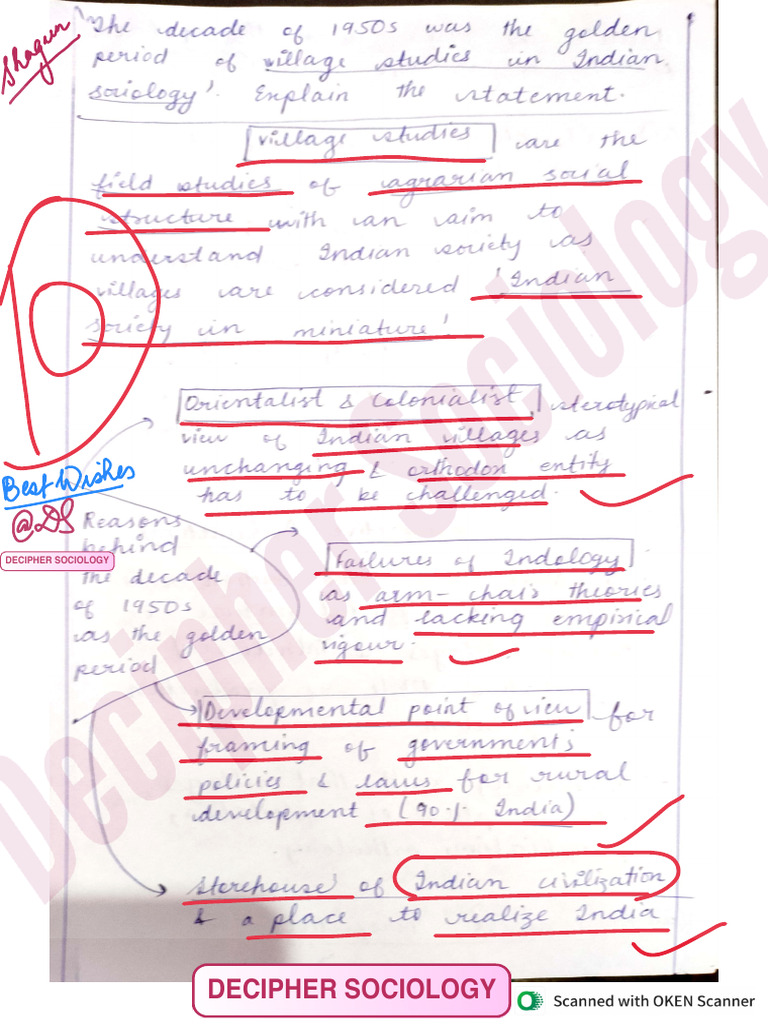 Shagun
'The decade of 1950s was the golden
period of village studies in Indian
sociology'. Explain the statement.
Village studies are the
field studies of agrarian social
structure with an aim to
understand Indian society as
villages are considered 'Indian
society in miniature'
Orientalist & Colonialist sterotypical
view of Indian villages as
unchanging & orthodox entity
has to be challenged.
Best Wishes
@DS
DECIPHER SOCIOLOGY
Reasons
behind
the decade
of 1950s
was the golden
period
Failures of Indology
as arm-chair theories
and lacking empirical
vigour.
Developmental point of view for
framing of governments
policies & laws for rural
development (90% India)
'Storehouse' of Indian civilization
& a place to realize India
Decipher Sociology
DECIPHER SOCIOLOGY
Scanned with OKEN Scanner